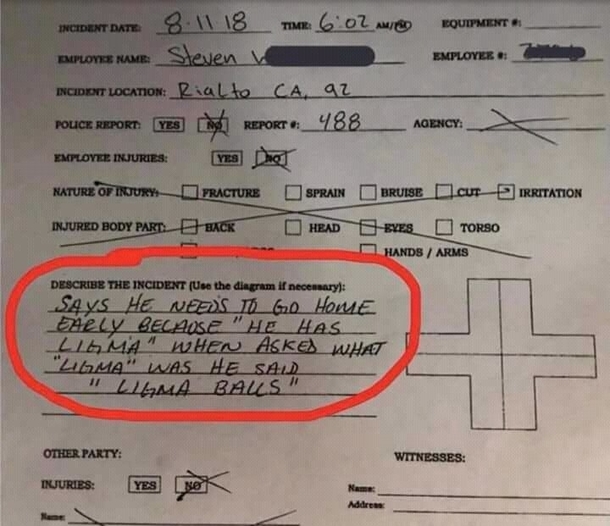 INCIDENT DATE: 8-11-18 TIME: 6:02 AM/PM EQUIPMENT #:
EMPLOYEE NAME: Steven EMPLOYEE #:
INCIDENT LOCATION: Rialto CA, 92
POLICE REPORT: YES NO REPORT #: 488 AGENCY:
EMPLOYEE INJURIES: YES NO
NATURE OF INJURY: FRACTURE SPRAIN BRUISE CUT IRRITATION
INJURED BODY PART: BACK HEAD EYES TORSO
HANDS / ARMS
DESCRIBE THE INCIDENT (Use the diagram if necessary):
SAYS HE NEEDS TO GO HOME
EARLY BECAUSE "HE HAS
LIGMA" WHEN ASKED WHAT
"LIGMA" WAS HE SAID
"LIGMA BALLS"
OTHER PARTY: WITNESSES:
INJURIES: YES NO
Name:
Address:
Name: